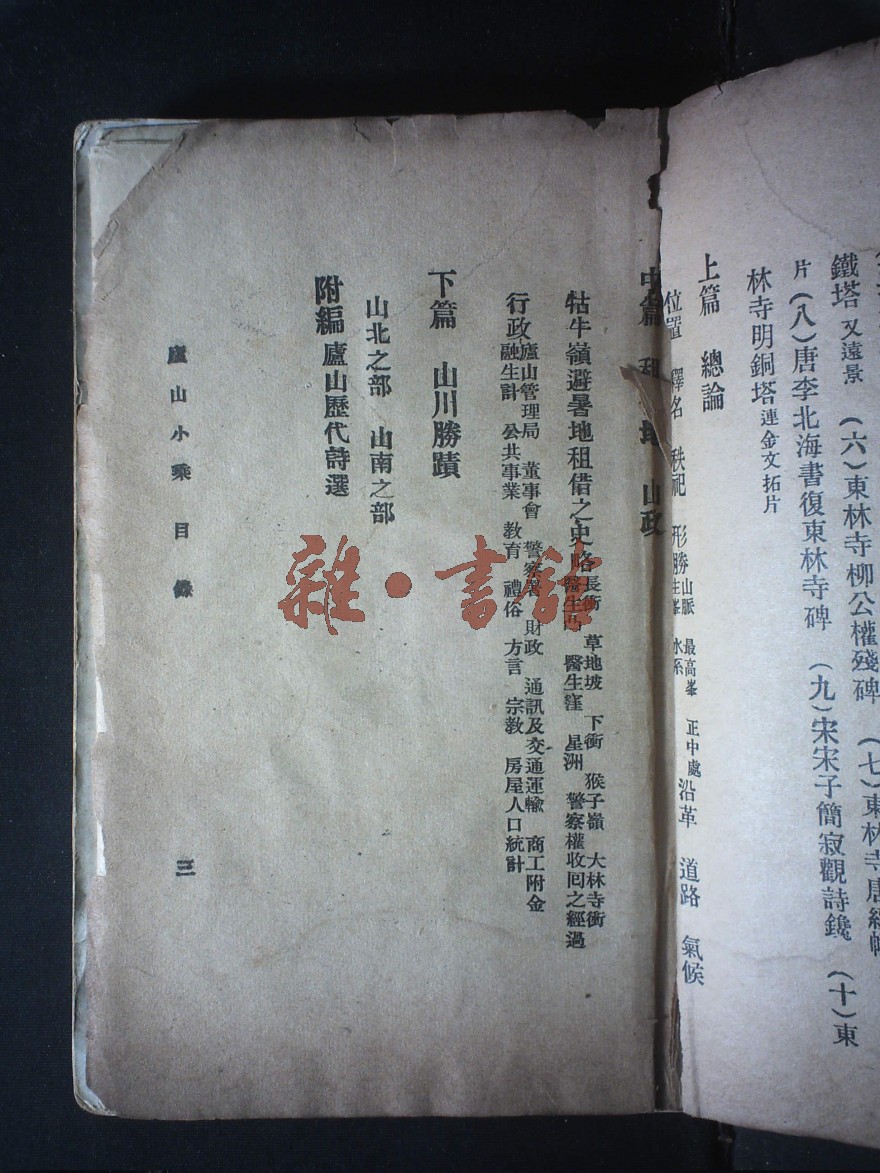 鐵塔 又遠景 (六)東林寺柳公權殘碑 (七)東林寺唐經幢
片 (八)唐李北海書復東林寺碑 (九)宋朱子簡寂觀詩鑱 (十)東
林寺明銅塔連金文拓片
上篇 總論
位置 釋名 秩祀 形勝 山脈 最高峯 正中處 水系 沿革 道路 氣候
中篇 租 地 山政
牯牛嶺避暑地租借之史略 長衝 草地坡 下衝 猴子嶺 大林寺衝
醫生窪 星洲 警察權收回之經過
行政 廬山管理局 董事會 警察署 財政 通訊及交通運輸 商工附金
融生計 公共事業 教育 禮俗 方言 宗教 房屋人口統計
下篇 山川勝蹟
山北之部 山南之部
附編 廬山歷代詩選
廬山小乘 目錄
三
雜·書館